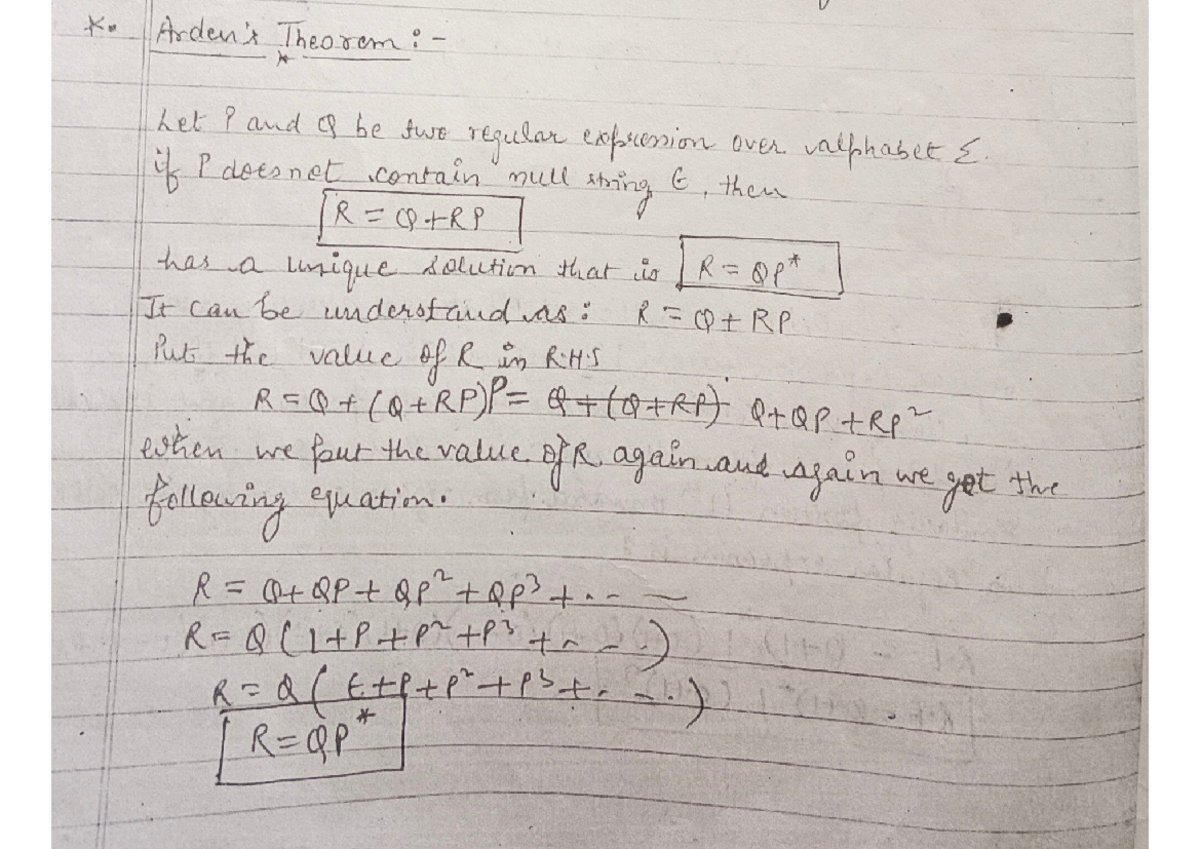 *. Arden's Theorem :-
Let P and Q be two regular expression over alphabet Σ.
if P does not contain null string ϵ, then
R = Q+RP
has a unique solution that is R = QP*
It can be understand as: R = Q + RP
Put the value of R in R.H.S
R = Q + (Q+RP)P = Q+(Q+RP) Q+QP+RP²
When we put the value of R again and again we get the
following equation.
R = Q+QP+QP²+QP³+...
R = Q(1+P+P²+P³+...)
R = Q(ϵ+P+P²+P³+....)
R=QP*